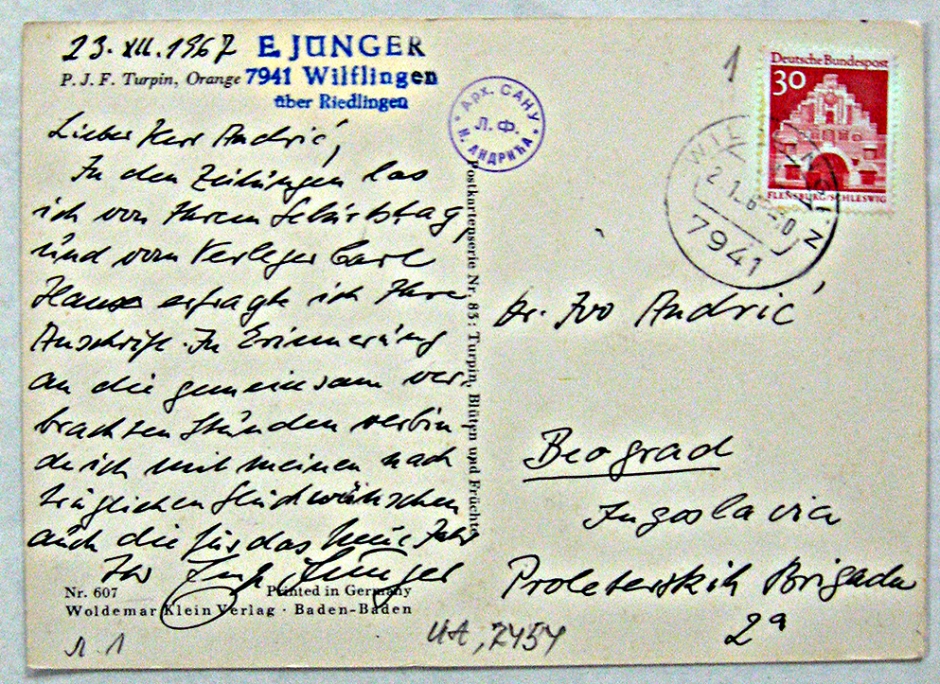 23. XII. 1967
E. JÜNGER
7941 Wilflingen
über Riedlingen
P. J. F. Turpin, Orange
Lieber Herr Andrić,
In den Zeitungen las
ich von Ihrem Geburtstag,
und vom Verleger Carl
Hanser erfragte ich Ihre
Anschrift. In Erinnerung
an die gemeinsam ver-
brachten Stunden verbin-
de ich mit meinen nach
träglichen Glückwünschen
auch die für das Neue Jahr
Ihr Ernst Jünger
Nr. 607
Printed in Germany
Woldemar Klein Verlag · Baden-Baden
Л. 1
Арх. САНУ
Л. Ф.
И. АНДРИЋА
Postkartenserie Nr. 83: Turpin, Blüten und Früchte
1
Deutsche Bundespost
30
FLENSBURG/SCHLESWIG
WILFLINGEN
7941
Dr. Ivo Andrić
Beograd
Jugoslavia
Proleterskih Brigada
2a
ИА, 2454